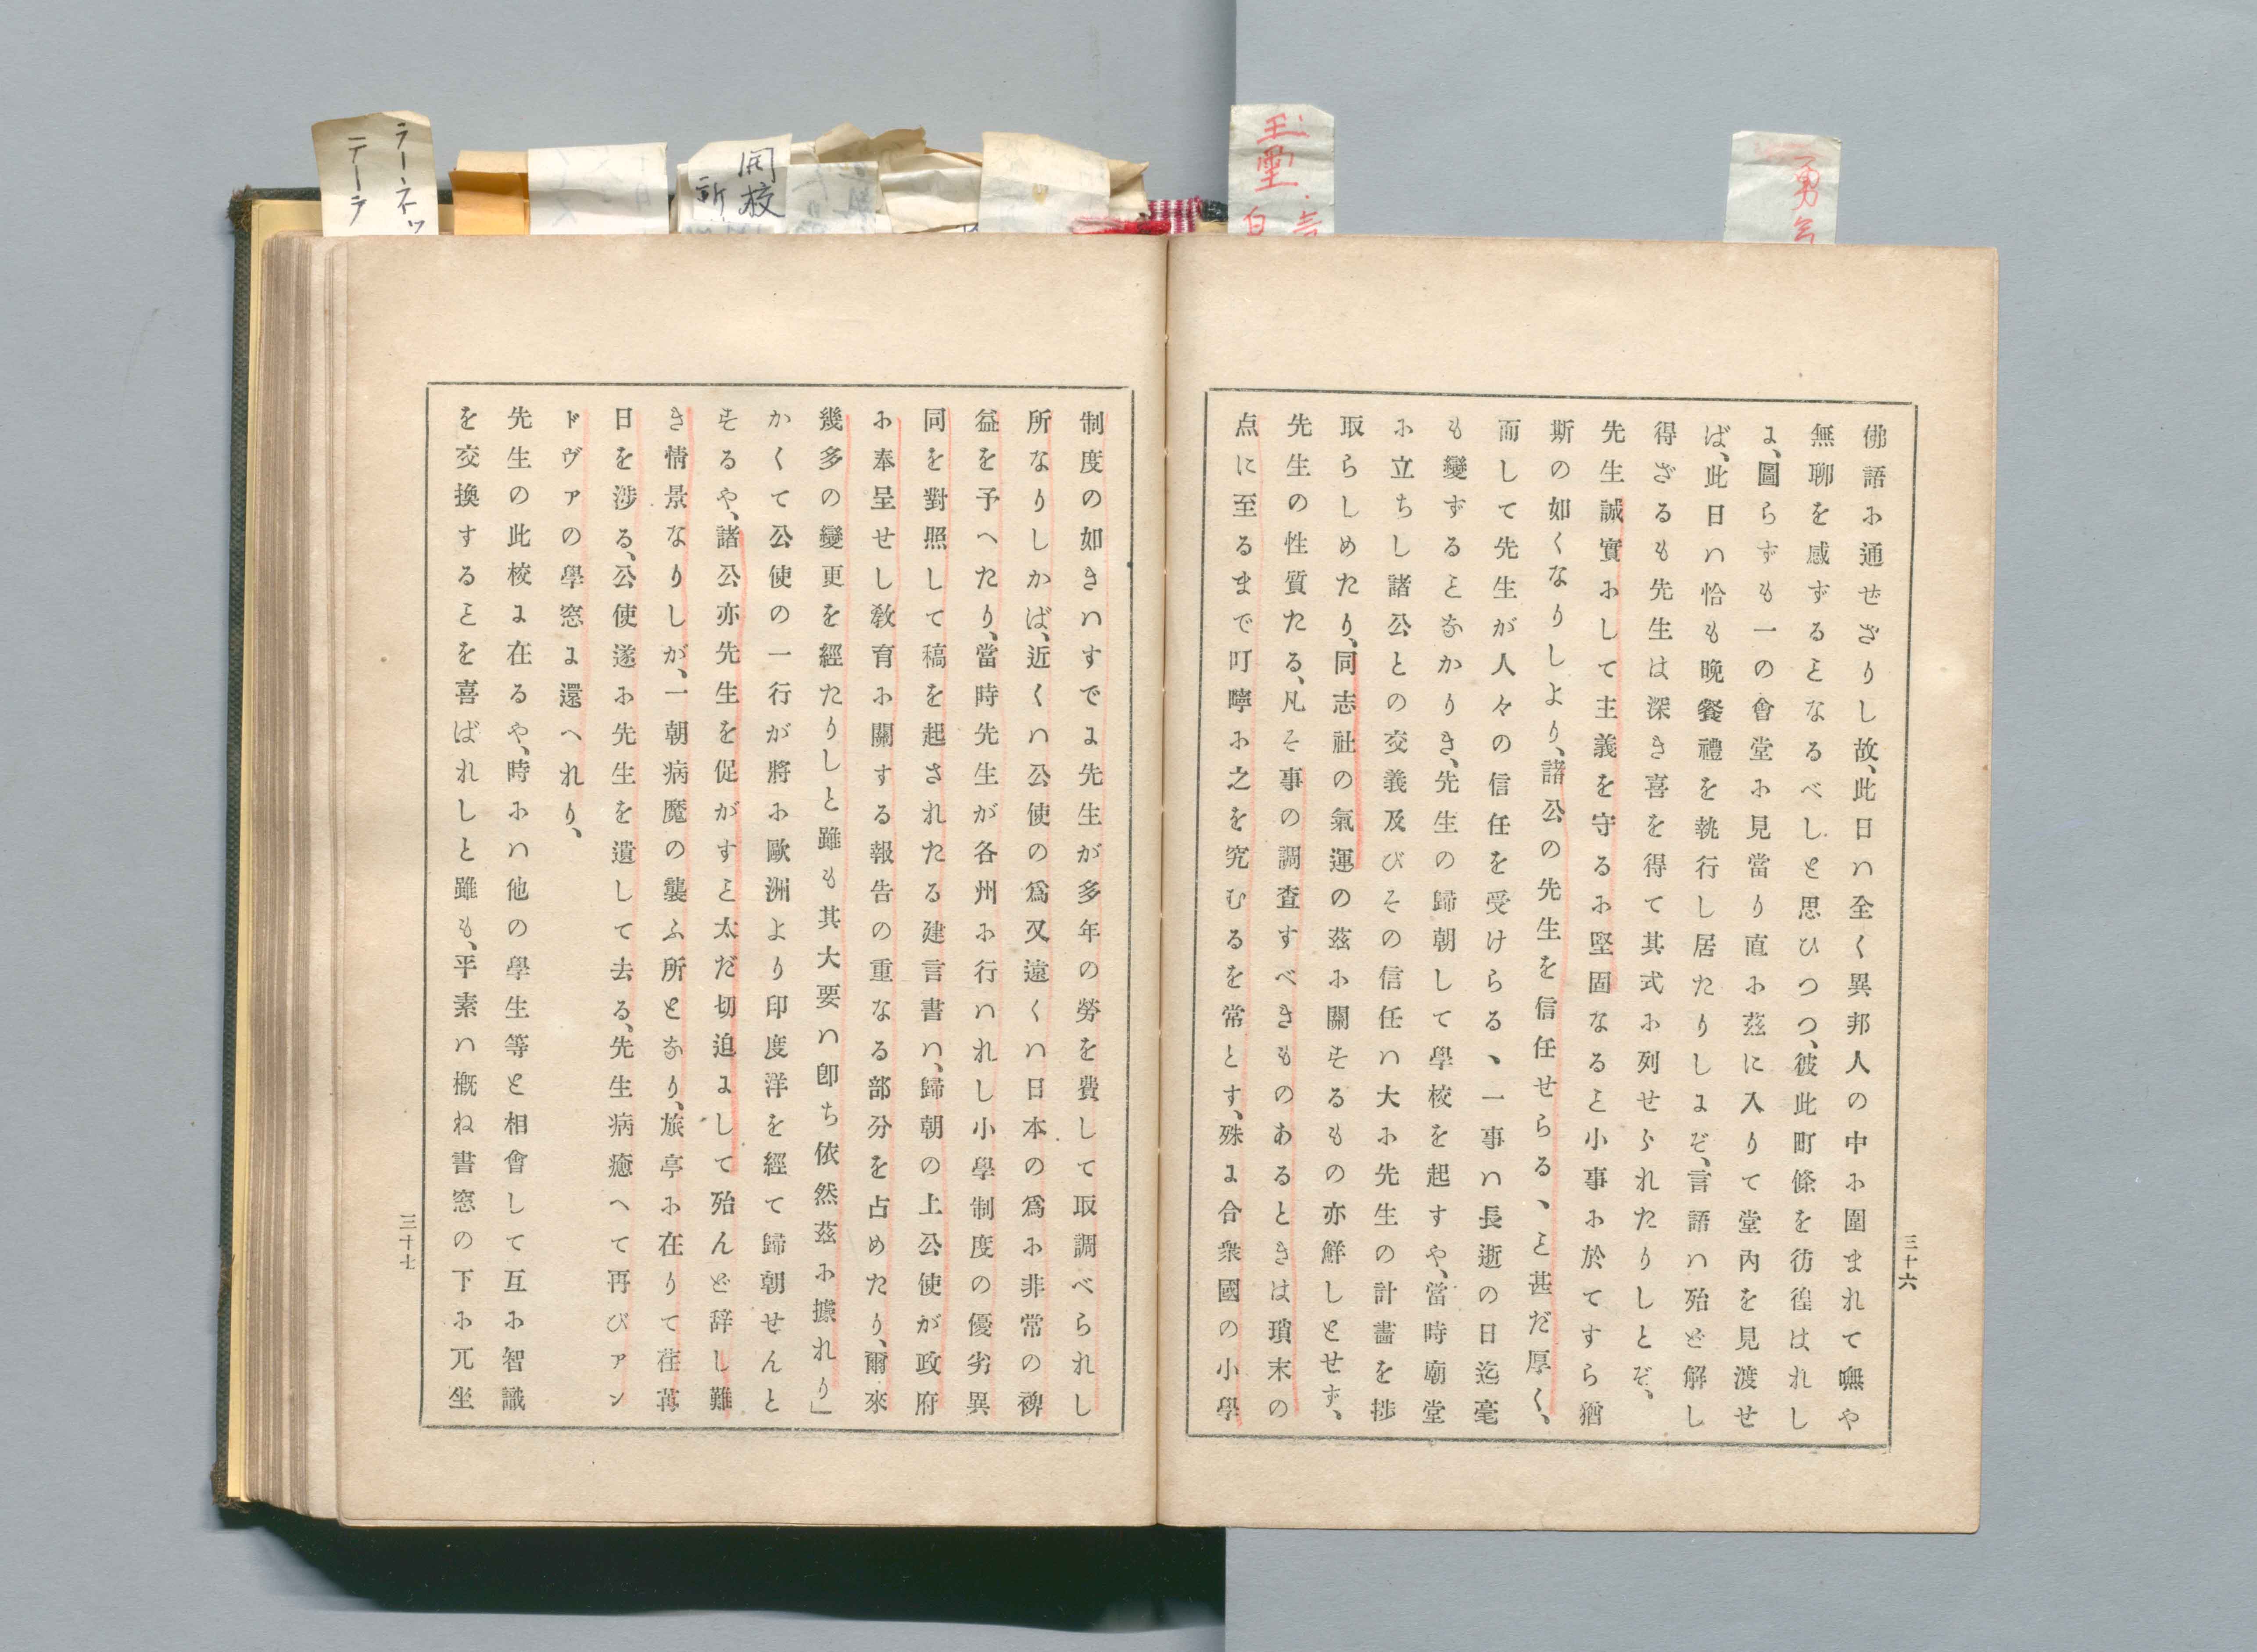 佛語に通せざりし故、此日ハ全く異邦人の中に圍まれて嘸や
無聊を感ずるとなるべしと思ひつつ、彼此町條を彷徨はれし
に、圖らずも一の會堂に見當り直に茲に入りて堂內を見渡せ
ば、此日ハ恰も晩餐禮を執行し居たりしにぞ、言語ハ殆ど解し
得ざるも先生は深き喜を得て其式に列せられたりしとぞ、
先生誠實にして主義を守るに堅固なるヿ小事に於てすら猶
斯の如くなりしより、諸公の先生を信任せらるヽヿ甚だ厚く、
而して先生が人々の信任を受けらるヽ一事ハ長逝の日迄毫
も變ずるヿなかりき、先生の歸朝して學校を起すや、當時廟堂
に立ちし諸公との交義及びその信任ハ大に先生の計畵を捗
取らしめたり、同志社の氣運の茲に關するもの亦鮮しとせず、
先生の性質たる、凡そ事の調査すべきものあるときは瑣末の
点に至るまで叮嚀に之を究むるを常とす、殊に合衆國の小學
三十六
制度の如きハすでに先生が多年の勞を費して取調べられし
所なりしかば、近くハ公使の爲又遠くハ日本の爲に非常の裨
益を予へたり、當時先生が各州に行ハれし小學制度の優劣異
同を對照して稿を起されたる建言書ハ、歸朝の上公使が政府
に奉呈せし敎育に關する報告の重なる部分を占めたり、爾來
幾多の變更を經たりしと雖も其大要ハ卽ち依然茲に據れり」
かくて公使の一行が將に歐洲より印度洋を經て歸朝せんと
するや、諸公亦先生を促がすヿ太だ切迫にして殆んど辞し難
き情景なりしが、一朝病魔の襲ふ所となり、旅亭に在りて荏苒
日を涉る、公使遂に先生を遺して去る、先生病癒へて再びアン
ドヴァの學窓に還へれり、
先生の此校に在るや、時にハ他の學生等と相會して互に智識
を交換するヿを喜ばれしと雖も、平素ハ概ね書窓の下に兀坐
三十七
ラーネッ
テーラ
開校
勇気